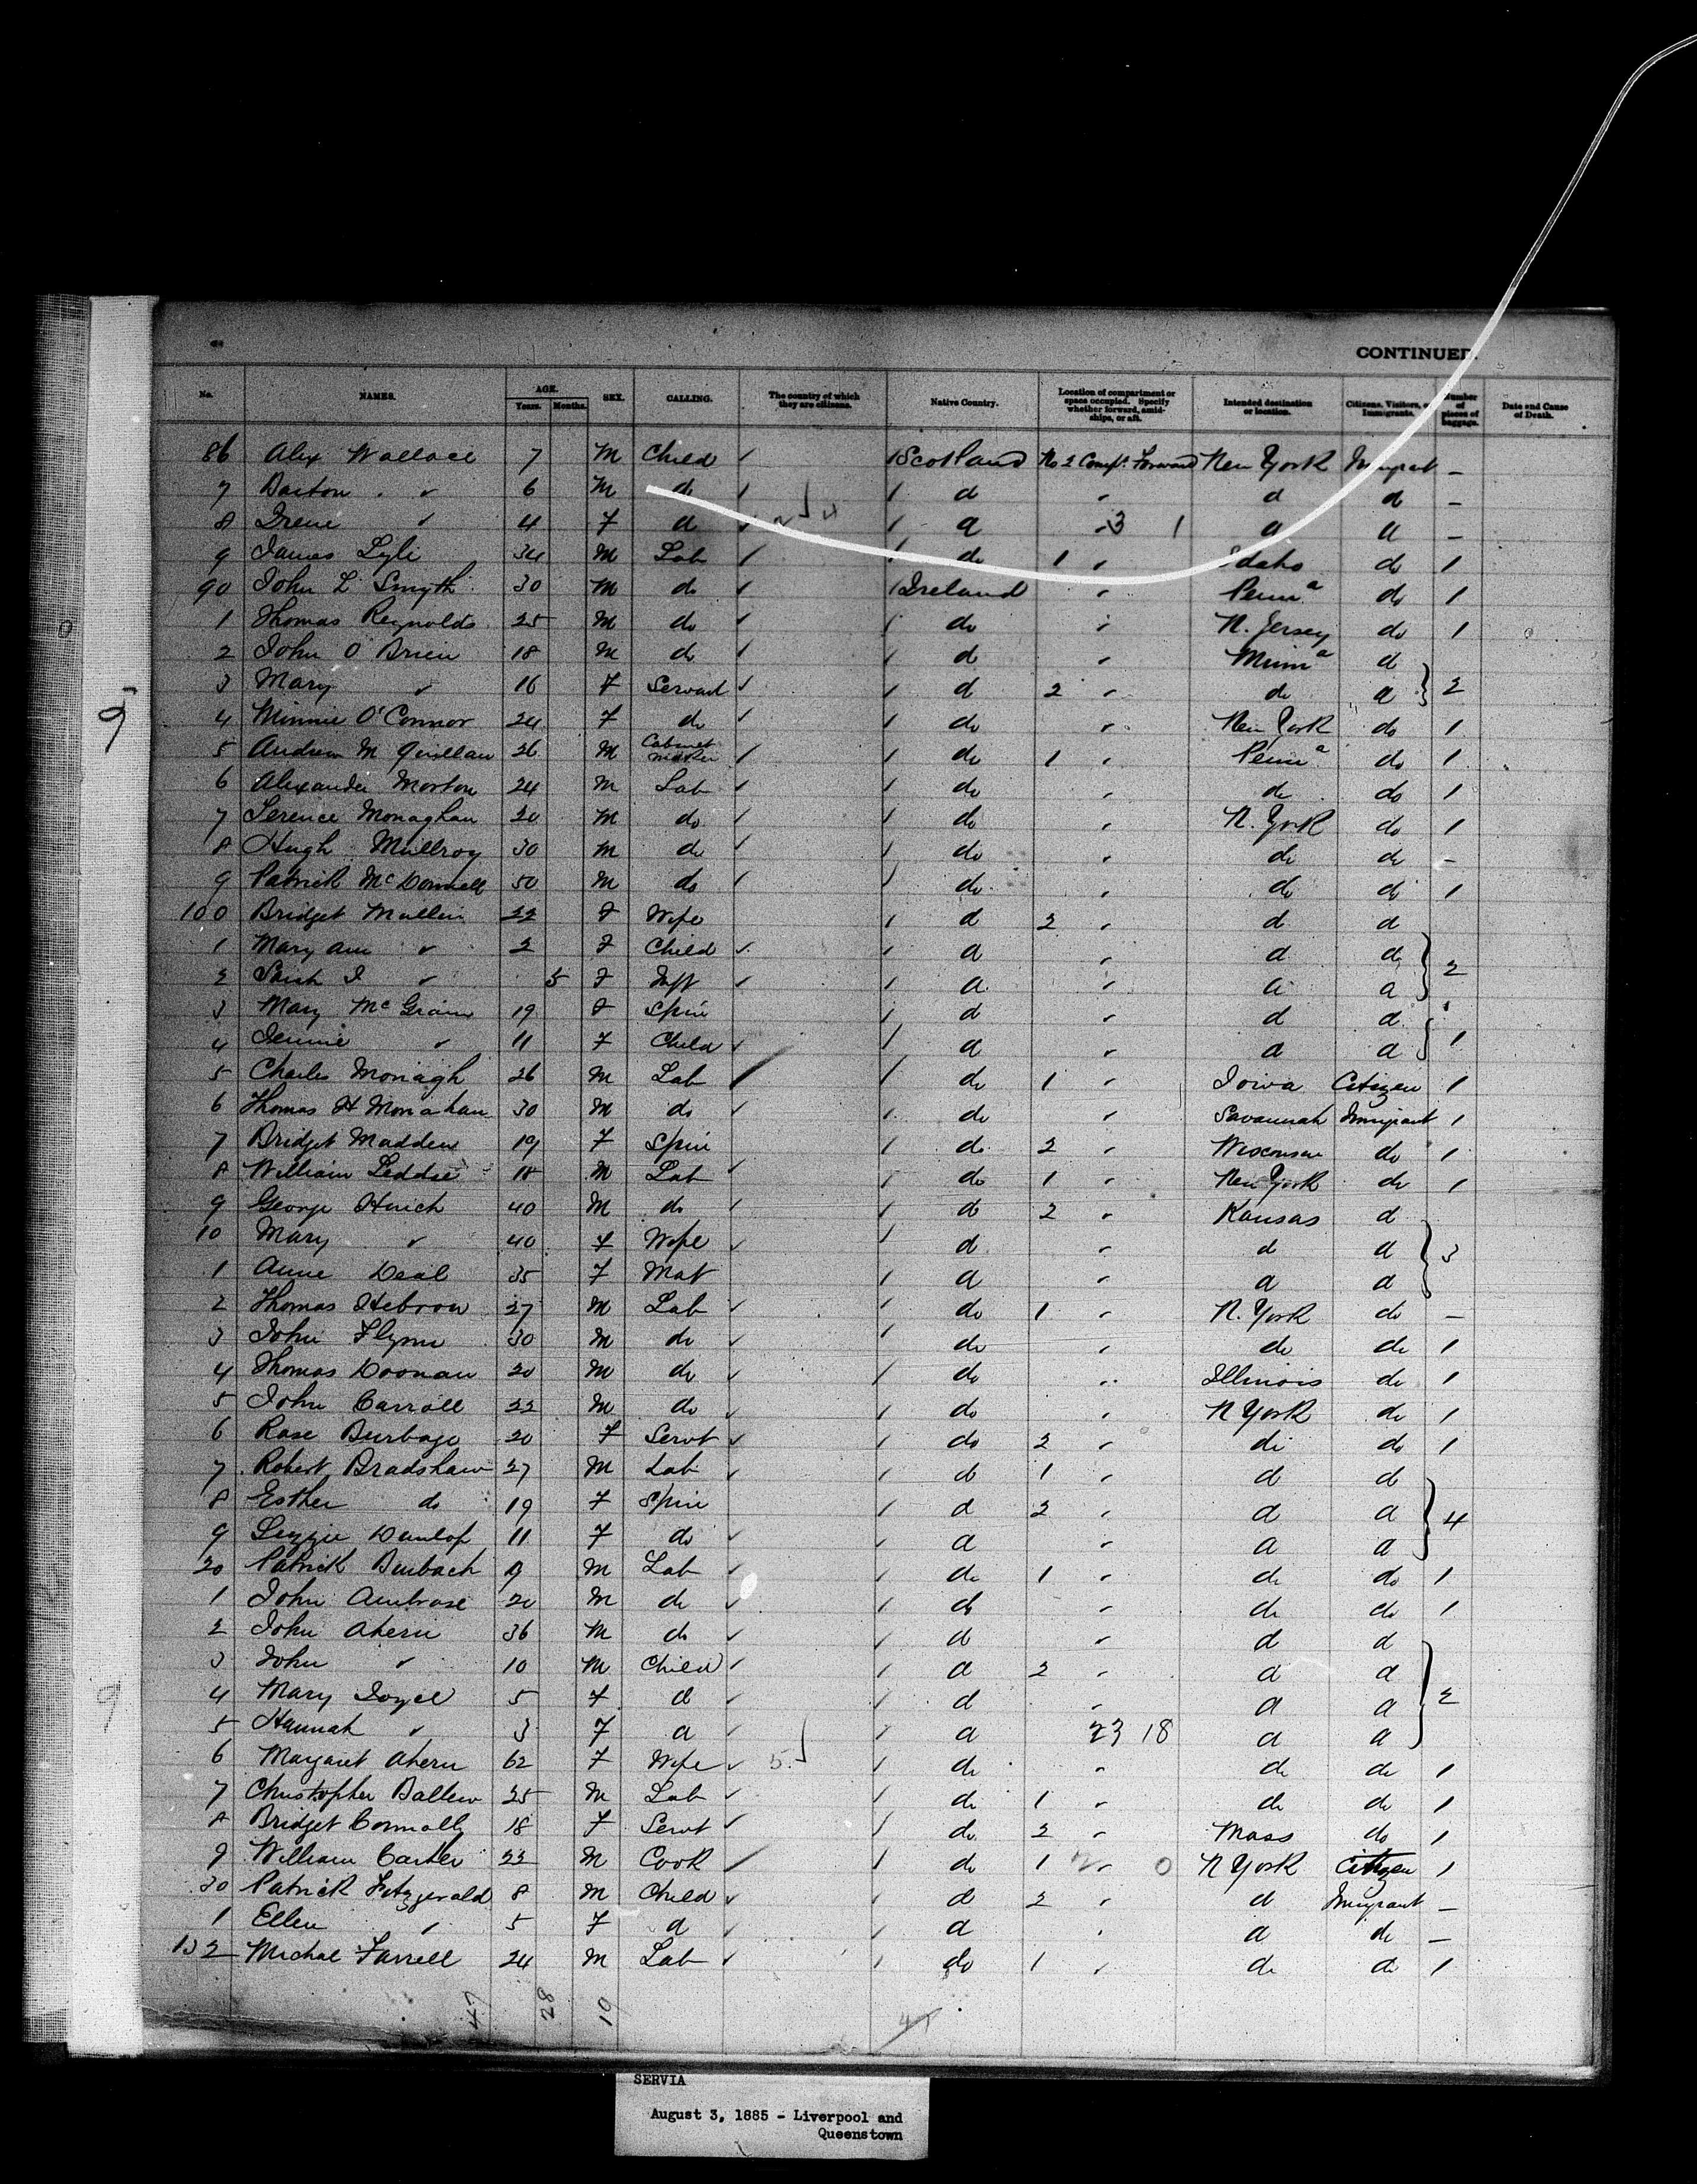 CONTINUED.
No. NAMES. AGE. Years. Months. SEX. CALLING. The country of which they are citizens. Native Country. Location of compartment or space occupied. Specify whether forward, amidships, or aft. Intended destination or location. Citizens, Visitors, or Immigrants. Number of pieces of baggage. Date and Cause of Death.
86 Alex Wallace 7 M Child Scotland No 2 Compt. Forward New York –
7 6 M do d " d d –
8 Irene " 4 F d d 3 1 d d –
9 James Lyle 34 M Lab do 1 " Idaho do 1
90 John L Smyth 30 M do Ireland " Penna do 1
1 Thomas Reynolds 25 M do do " N. Jersey do 1
2 John O'Brien 18 M do d " d
3 Mary " 16 F Servant d 2 " do d 2
4 Minnie O'Connor 24 F do do " New York do 1
5 Andrew M Quillan 26 M Cabinet Maker do 1 " Penna do 1
6 Alexander Morton 24 M Lab do " do do 1
7 Terence Monaghan 20 M do do " N. York do 1
8 Hugh Mullroy 30 M do do " do do –
9 Patrick McDonnell 50 M do do " do do 1
100 Bridget Mullin 22 F Wife d 2 " d d
1 Mary Ann " 2 F Child d " d do
2 " 5 F Inft d " d d 2
3 Mary McGrain 19 F Spin d " d d
4 Jennie " 11 F Child d " d d 1
5 Charles Monagh 26 M Lab do 1 " Iowa Citizen 1
6 Thomas H Monahan 30 M do do " Savannah Immigrant 1
7 Bridget Madden 19 F Spin do 2 " Wisconsin do 1
8 William 18 M Lab do 1 " New York do 1
9 George 40 M do do 2 " Kansas d
10 Mary " 40 F Wife d " d d 3
1 Anne Deal 35 F Mat d " d d
2 Thomas Hebron 27 M Lab do 1 " N. York do –
3 John Flynn 30 M do do " do do 1
4 Thomas Doonan 20 M do do " Illinois do 1
5 John Carroll 22 M do do " N York do 1
6 Rose Burbage 20 F Servt do 2 " do do 1
7 Robert Bradshaw 27 M Lab do 1 " d do
8 Esther do 19 F Spin d 2 " d d 4
9 Lizzie Dunlop 11 F do d " d d
20 Patrick 19 M Lab do 1 " do do 1
1 John Ambrose 20 M do do " do do 1
2 John Ahern 36 M do d " d d
3 John " 10 M Child d 2 " d d
4 Mary Joyce 5 F d d " d d 2
5 Hannah " 3 F d d 23 18 d d
6 Margaret Ahern 62 F Wife 5 do " do do 1
7 Christopher 25 M Lab do 1 " do do 1
8 Bridget Connolly 18 F Servt do 2 " Mass do 1
9 William Carter 22 M Cook do 1 " 0 N York Citizen 1
30 Patrick Fitzgerald 8 M Child d 2 " d Immigrant –
1 Ellen " 5 F d d " d do –
132 Michal Farrell 24 M Lab do 1 " do do 1
47 28 19
SERVIA
August 3, 1885 - Liverpool and
Queenstown